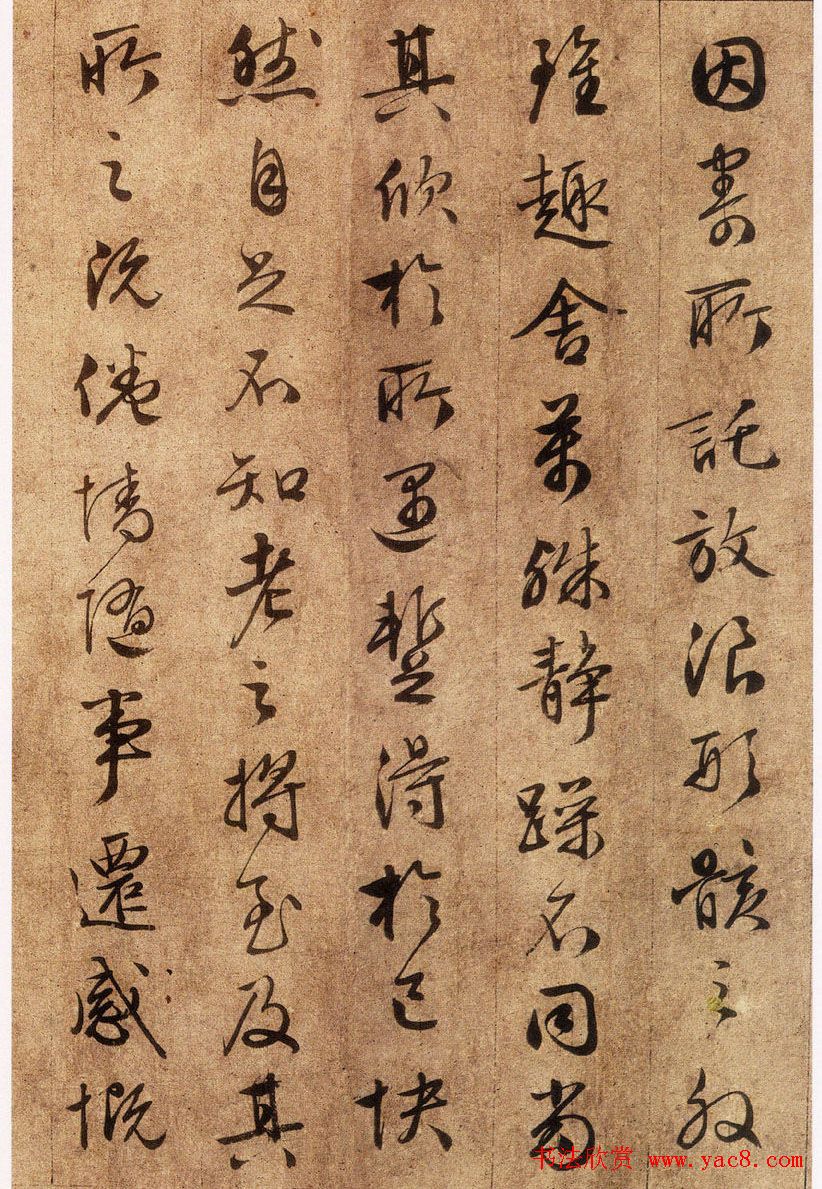 因寄所託放浪形骸之外
雖趣舍萬殊静躁不同當
其欣於所遇蹔得於己快
然自足不知老之將至及其
所之既倦情隨事遷感慨
书法欣赏 www.yac8.com